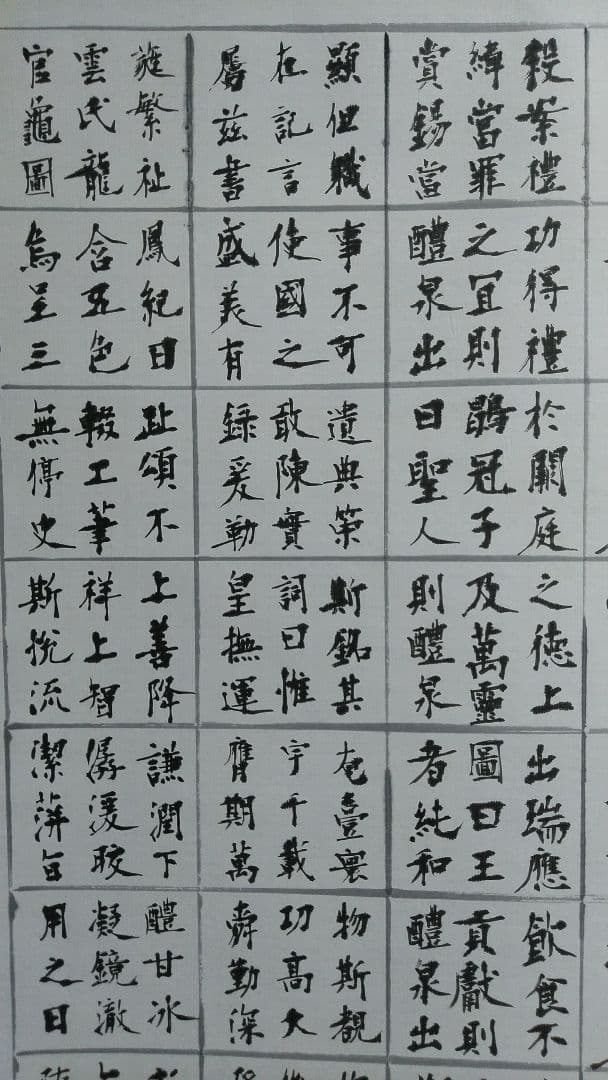 殺案禮
緯當罪
賞錫當
功得禮
之冝則
醴泉出
於闕庭
鶡冠子
曰聖人
之德上
及萬靈
則醴泉
出瑞應
圖曰王
者純和
飲食不
貢獻則
醴泉出
顯但職
在記言
屬茲書
事不可
使國之
盛美有
遺典策
敢陳實
録爰勒
斯銘其
詞曰惟
皇撫運
奄壹寰
宇千載
膺期萬
物斯覩
功高大
舜勤深
蕤繁祉
雲民龍
官龜圖
鳳紀日
含五色
烏呈三
趾頌不
輟工筆
無停史
上善降
祥上智
斯悅流
謙潤下
潺湲皎
潔萍旨
醴甘冰
凝鏡澈
用之日